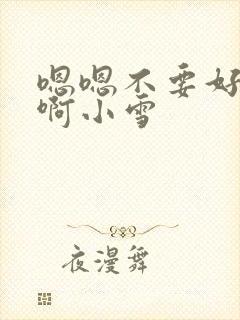 嗯嗯不要好
啊小雪
夜漫舞